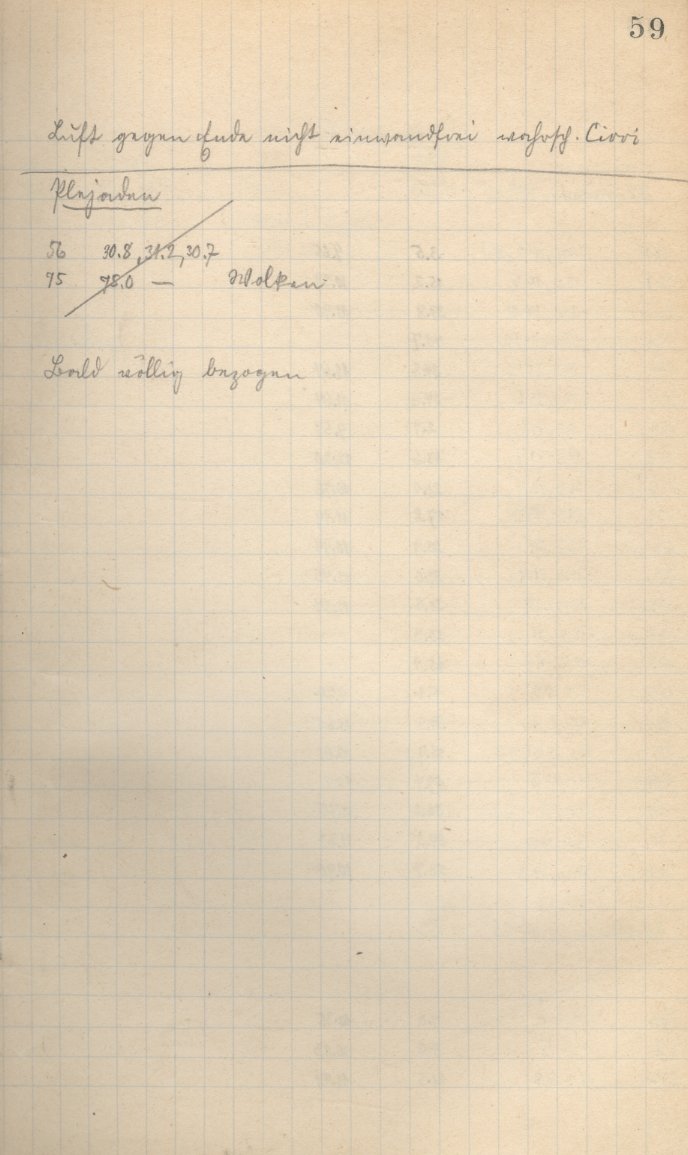 59
Luft gegen Ende nicht einwandfrei wahrsch. Cirri
Plejaden
56 30.8, 31.2, 30.7
75 78.0 — Wolken
Bald völlig bezogen